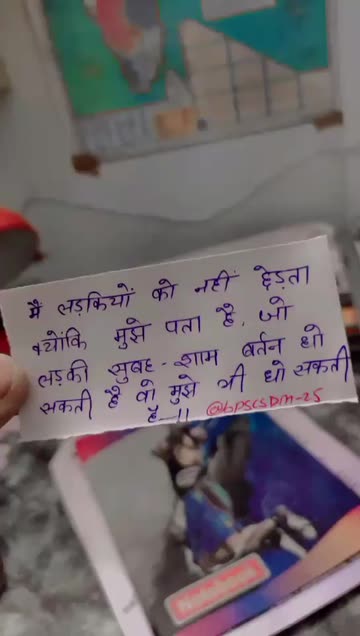 मैं लड़कियों को नहीं छेड़ता
क्योंकि मुझे पता है, जो
लड़की सुबह-शाम बर्तन धो
सकती है वो मुझे भी धो सकती
है--!! @bpscsdm-25
Notebook